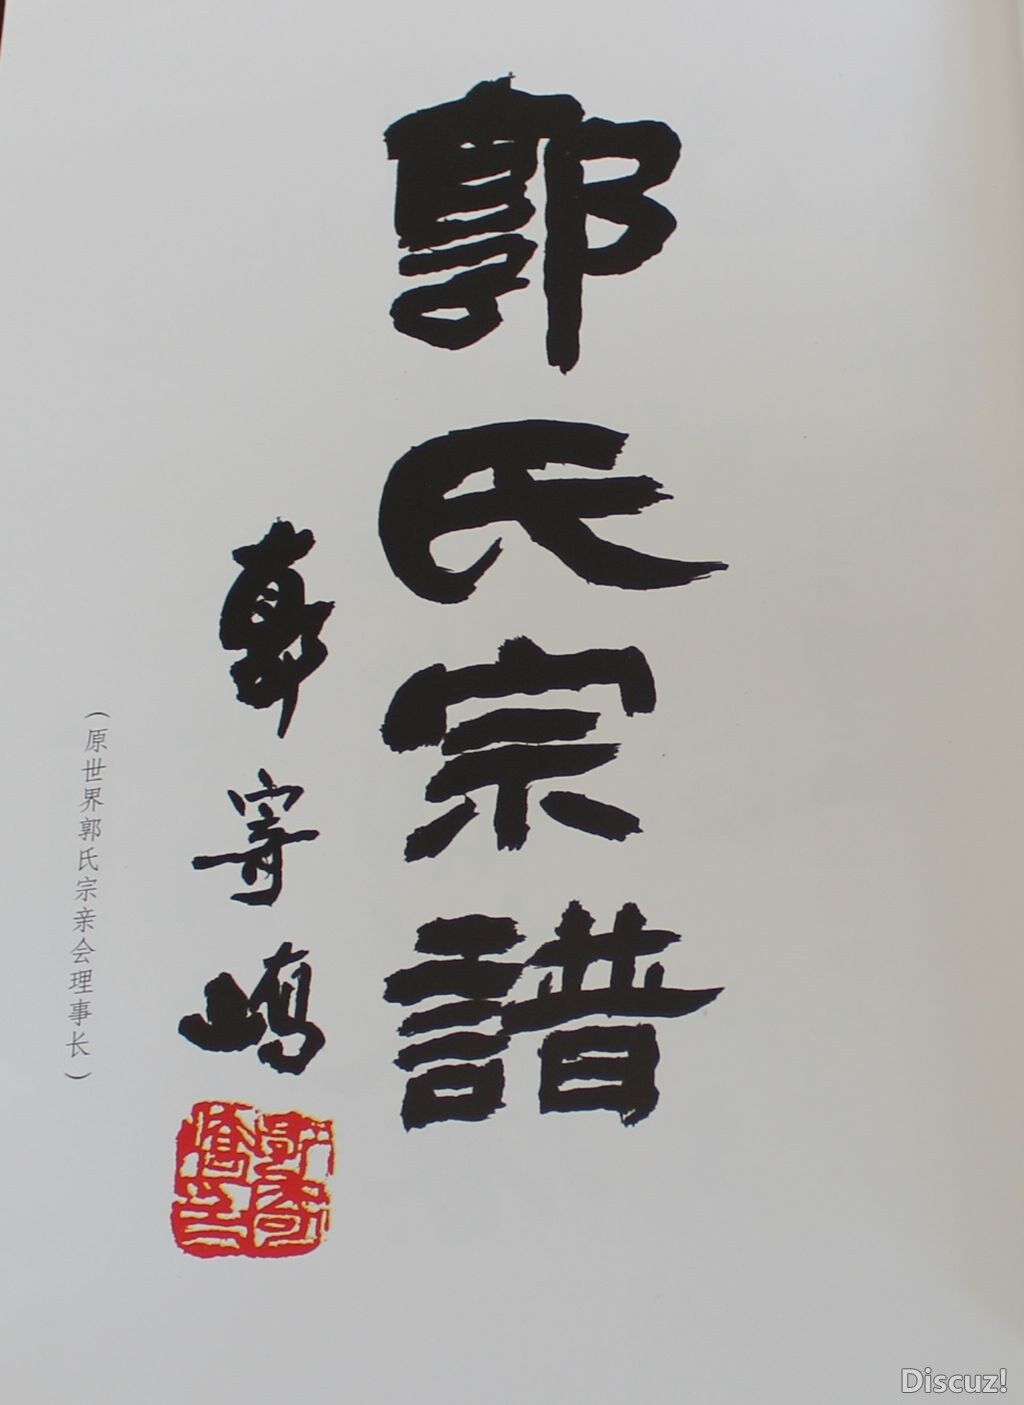 郭氏宗譜
郭寄嶠
（原世界郭氏宗亲会理事长）
Discuz!